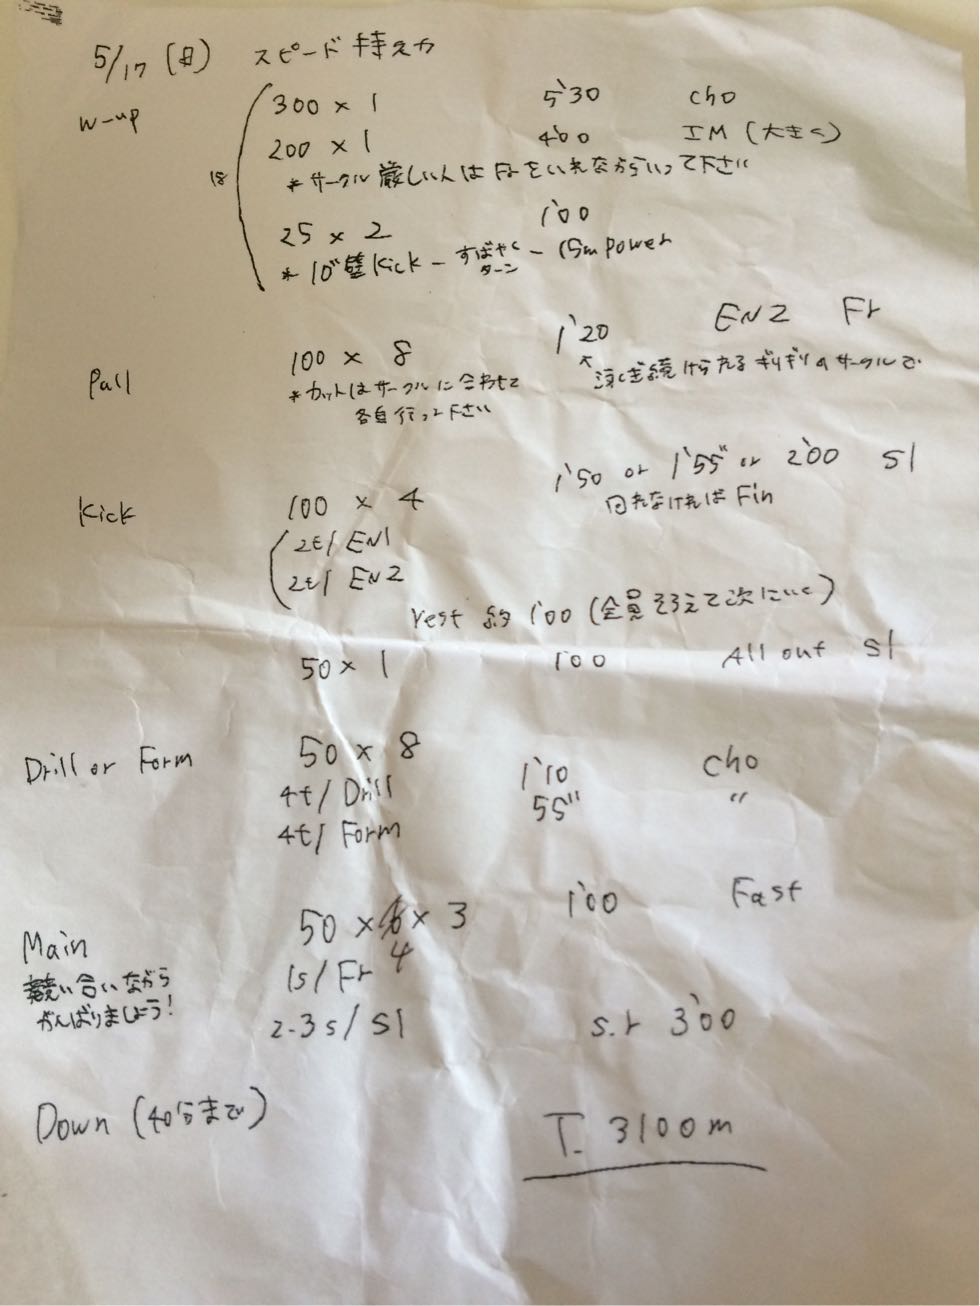 5/17 (日) スピード持久力
W-up
300 × 1 5'30 cho
200 × 1 4'00 IM (大きく)
18
*サークル厳しい人はFrをいれながらいって下さい
25 × 2 1'00
*10"壁kick - すばやくターン - 15m power
Pull 100 × 8 1'20 EN2 Fr
*カットはサークルに合わせて
各自行って下さい
*泳ぎ続けられるギリギリのサークルで
Kick 100 × 4 1'50 or 1'55" or 2'00 S1
回れなければ Fin
2t/ EN1
2t/ EN2
rest 約 1'00 (全員そろえて次にいく)
50 × 1 1'00 All out S1
Drill or Form 50 × 8
4t/ Drill 1'10 cho
4t/ Form 55" 〃
Main 50 × 4 × 3 1'00 Fast
競い合いながら
がんばりましょう!
1s/ Fr
2-3s/ S1 s.r 3'00
Down (40分まで)
T. 3100m